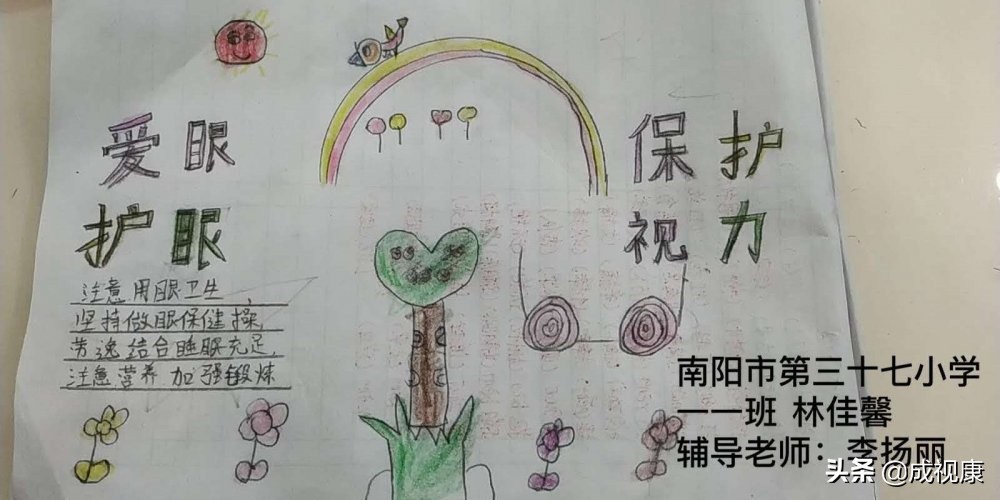 爱眼
护眼
注意用眼卫生，
坚持做眼保健操，
劳逸结合睡眠充足，
注意营养加强锻炼
保护
视力
南阳市第三十七小学
一一班 林佳馨
辅导老师：李扬丽
头条 @成视康